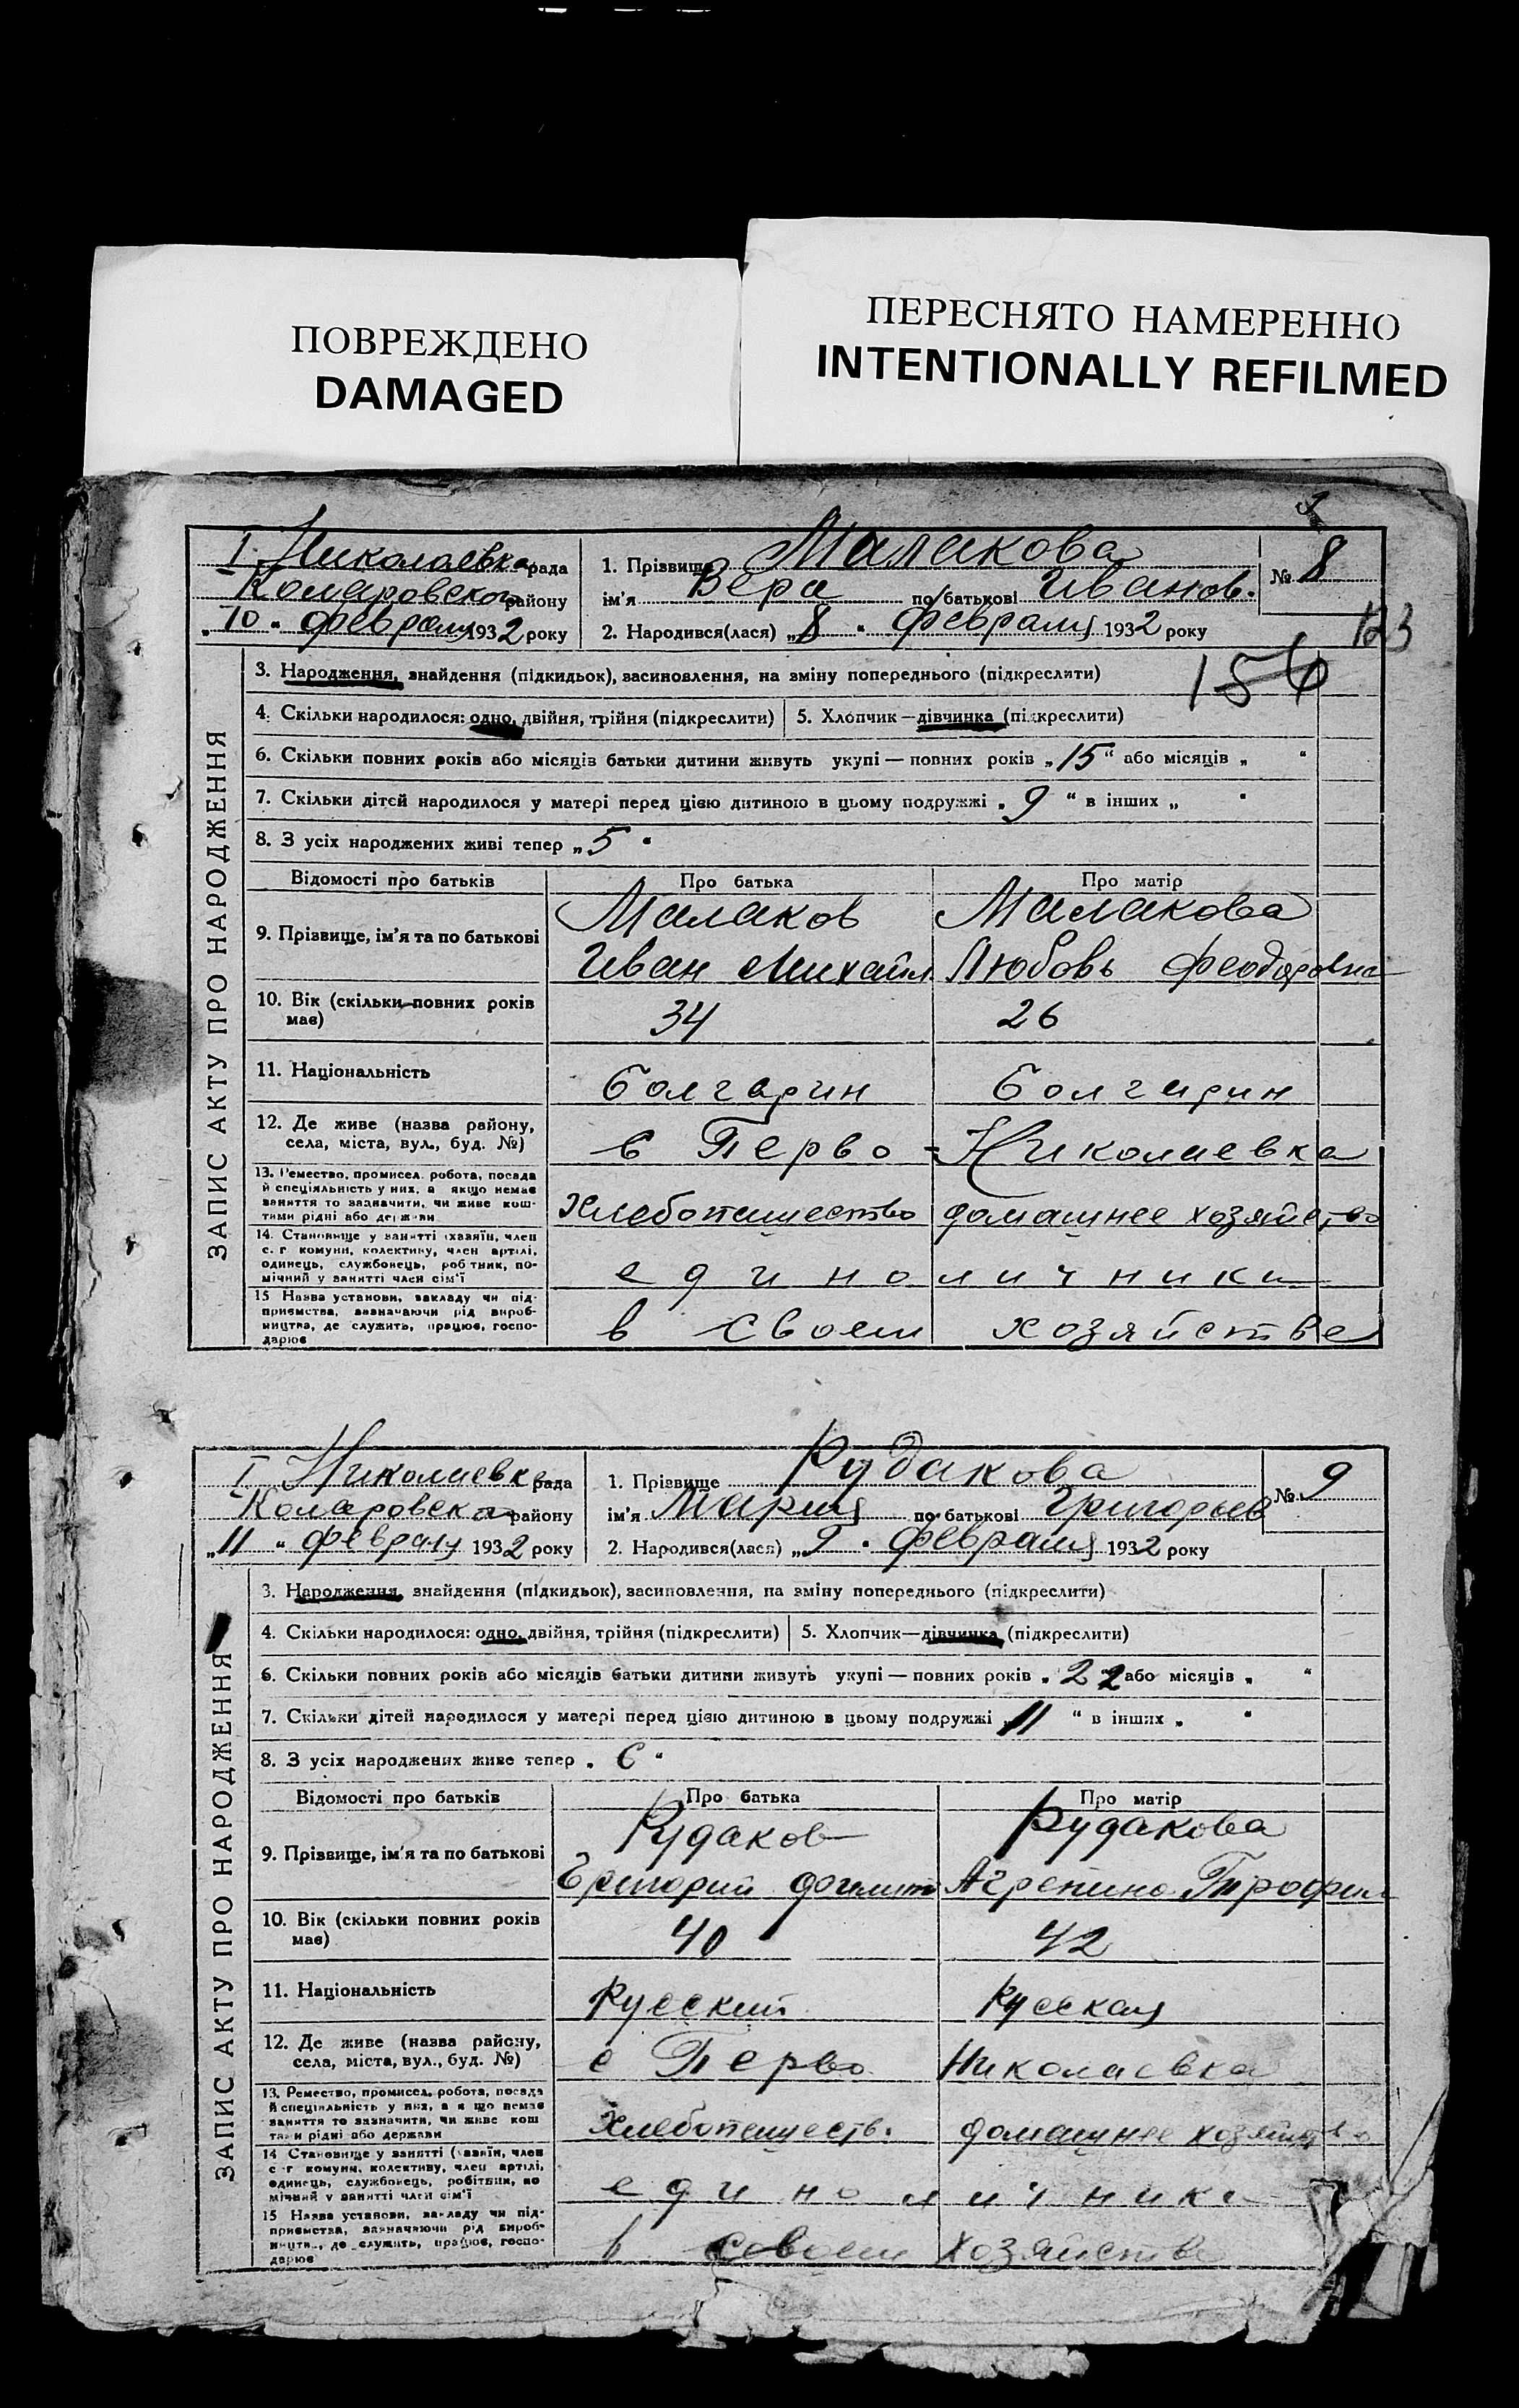 ПОВРЕЖДЕНО
DAMAGED
ПЕРЕСНЯТО НАМЕРЕННО
INTENTIONALLY REFILMED
І Николаевка рада
Комаровског району
„10“ февраля 1932 року
1. Прізвище Малакова
ім'я Вера по батькові Иванов.
2. Народився(лася) „8“ февраля 1932 року
№ 8
123
156
ЗАПИС АКТУ ПРО НАРОДЖЕННЯ
3. Народження, знайдення (підкидьок), засиновлення, на зміну попереднього (підкреслити)
4. Скільки народилося: одно, двійня, трійня (підкреслити) 5. Хлопчик—дівчинка (підкреслити)
6. Скільки повних років або місяців батьки дитини живуть укупі — повних років „15“ або місяців „ “
7. Скільки дітей народилося у матері перед цією дитиною в цьому подружжі „9“ в інших „ “
8. З усіх народжених живі тепер „5“
Відомості про батьків Про батька Про матір
9. Прізвище, ім'я та по батькові
Малаков Малакова
Иван Михайл. Любовь Феодоровна
10. Вік (скільки повних років
має)
34 26
11. Національність
болгарин болгарин
12. Де живе (назва району,
села, міста, вул., буд. №)
с Перво-Николаевка
13. Ремество, промисел, робота, посада
й спеціяльність у них, а якщо немає
заняття то зазначити, чи живе кош-
тами рідні або держави
Хлебопашество домашнее хозяйство
14. Становище у занятті (хазяїн, член
с. г комуни, колективу, член артілі,
одинець, службовець, робітник, по-
мічний у занятті член сім'ї
единоличники
15 Назва установи, закладу чи під-
приємства, зазначаючи рід вироб-
ництва, де служить, працює, госпо-
дарює
в своем хозяйстве
І Николаевка рада
Комаровског району
„11“ февраля 1932 року
1. Прізвище Рудакова
ім'я Мария по батькові Григорьев
2. Народився(лася) „9“ февраля 1932 року
№ 9
ЗАПИС АКТУ ПРО НАРОДЖЕННЯ
3. Народження, знайдення (підкидьок), засиновлення, на зміну попереднього (підкреслити)
4. Скільки народилося: одно, двійня, трійня (підкреслити) 5. Хлопчик—дівчинка (підкреслити)
6. Скільки повних років або місяців батьки дитини живуть укупі — повних років „22 або місяців „ “
7. Скільки дітей народилося у матері перед цією дитиною в цьому подружжі „11“ в інших „ “
8. З усіх народжених живе тепер „6“
Відомості про батьків Про батька Про матір
9. Прізвище, ім'я та по батькові
Рудаков Рудакова
Григорий Агрепина Трофим
10. Вік (скільки повних років
має)
40 42
11. Національність
Русский Русская
12. Де живе (назва району,
села, міста, вул., буд. №)
с Перво Николаевка
13. Ремество, промисел, робота, посада
й спеціяльність у них, а якщо немає
заняття то зазначити, чи живе кош
тами рідні або держави
Хлебопашеств. домашнее хозяйство
14 Становище у занятті (хазяїн, член
с г комуни, колективу, член артілі,
одинець, службовець, робітник, по
мічний у занятті член сім'ї
единоличники
15 Назва установи, закладу чи під-
приємства, зазначаючи рід вироб-
ництв., де служить, працює, госпо-
дарює
в своем хозяйстве